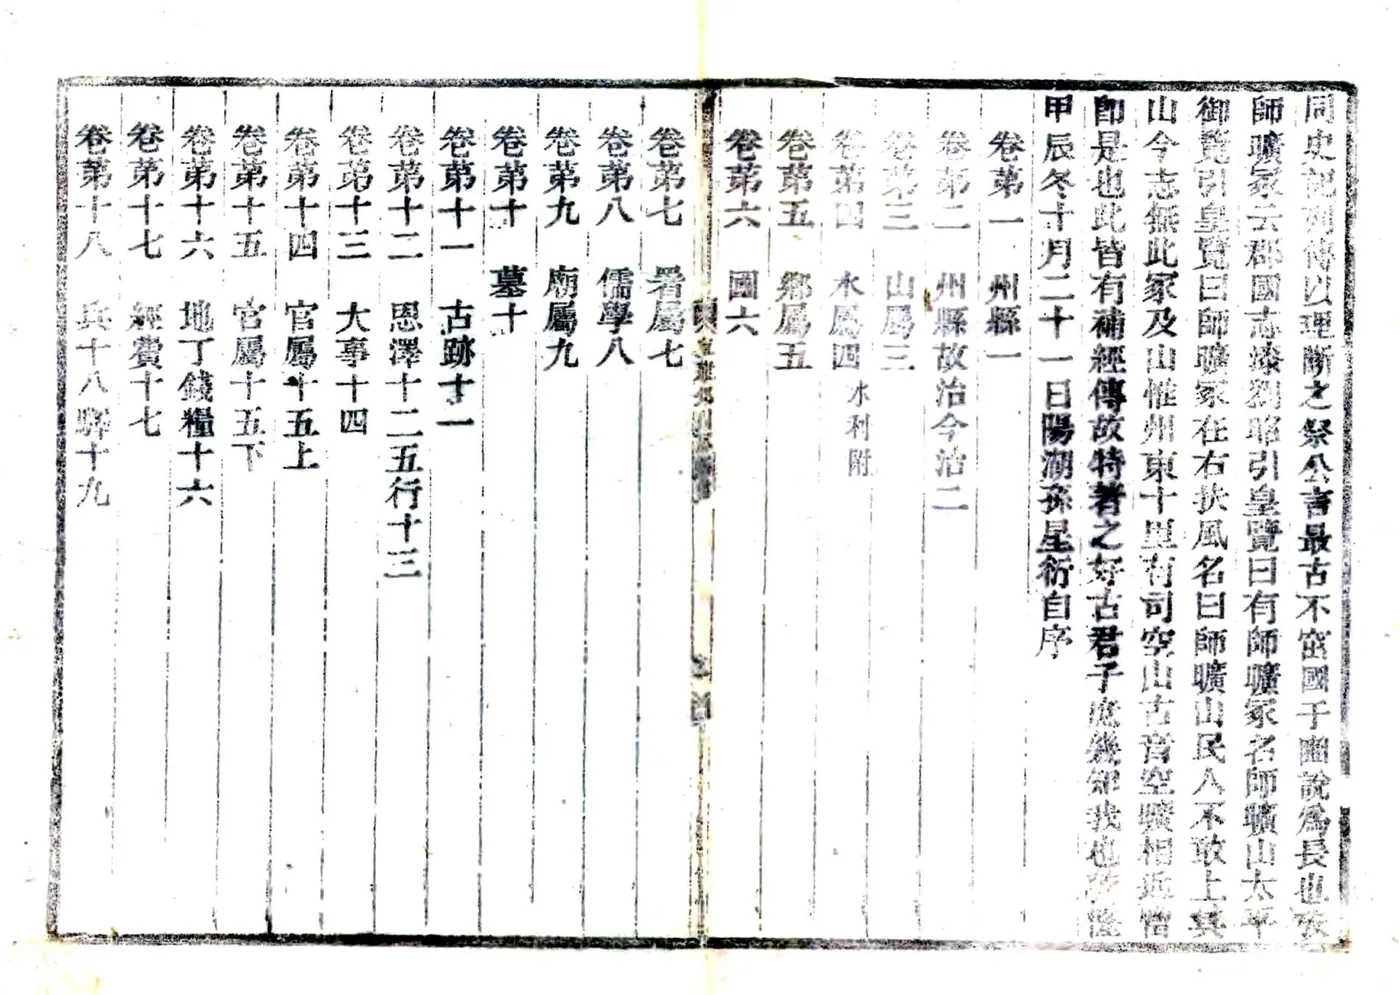 同史記列傳以理斷之祭公言最古不窋國于豳說為長也
師曠冢云郡國志漆劉昭引皇覽曰有師曠冢名師曠山太平
御覽引皇覽曰師曠冢在右扶風名曰師曠山民人不敢上其
山今志無此冢及山惟州東十里有司空山古音空曠相近
即是也此皆有補經傳故特著之好古君子庶幾知我也
甲辰冬十月二十一日陽湖孫星衍自序
卷苐一 州縣一
卷苐二 州縣故治今治二
卷苐三 山屬三
卷苐四 水屬四 水利附
卷苐五 鄉屬五
卷苐六 國六
卷苐七 署屬七
卷苐八 儒學八
卷苐九 廟屬九
卷苐十 墓十
卷苐十一 古跡十一
卷苐十二 恩澤十二五行十三
卷苐十三 大事十四
卷苐十四 官屬十五上
卷苐十五 官屬十五下
卷苐十六 地丁錢糧十六
卷苐十七 經費十七
卷苐十八 兵十八驛十九